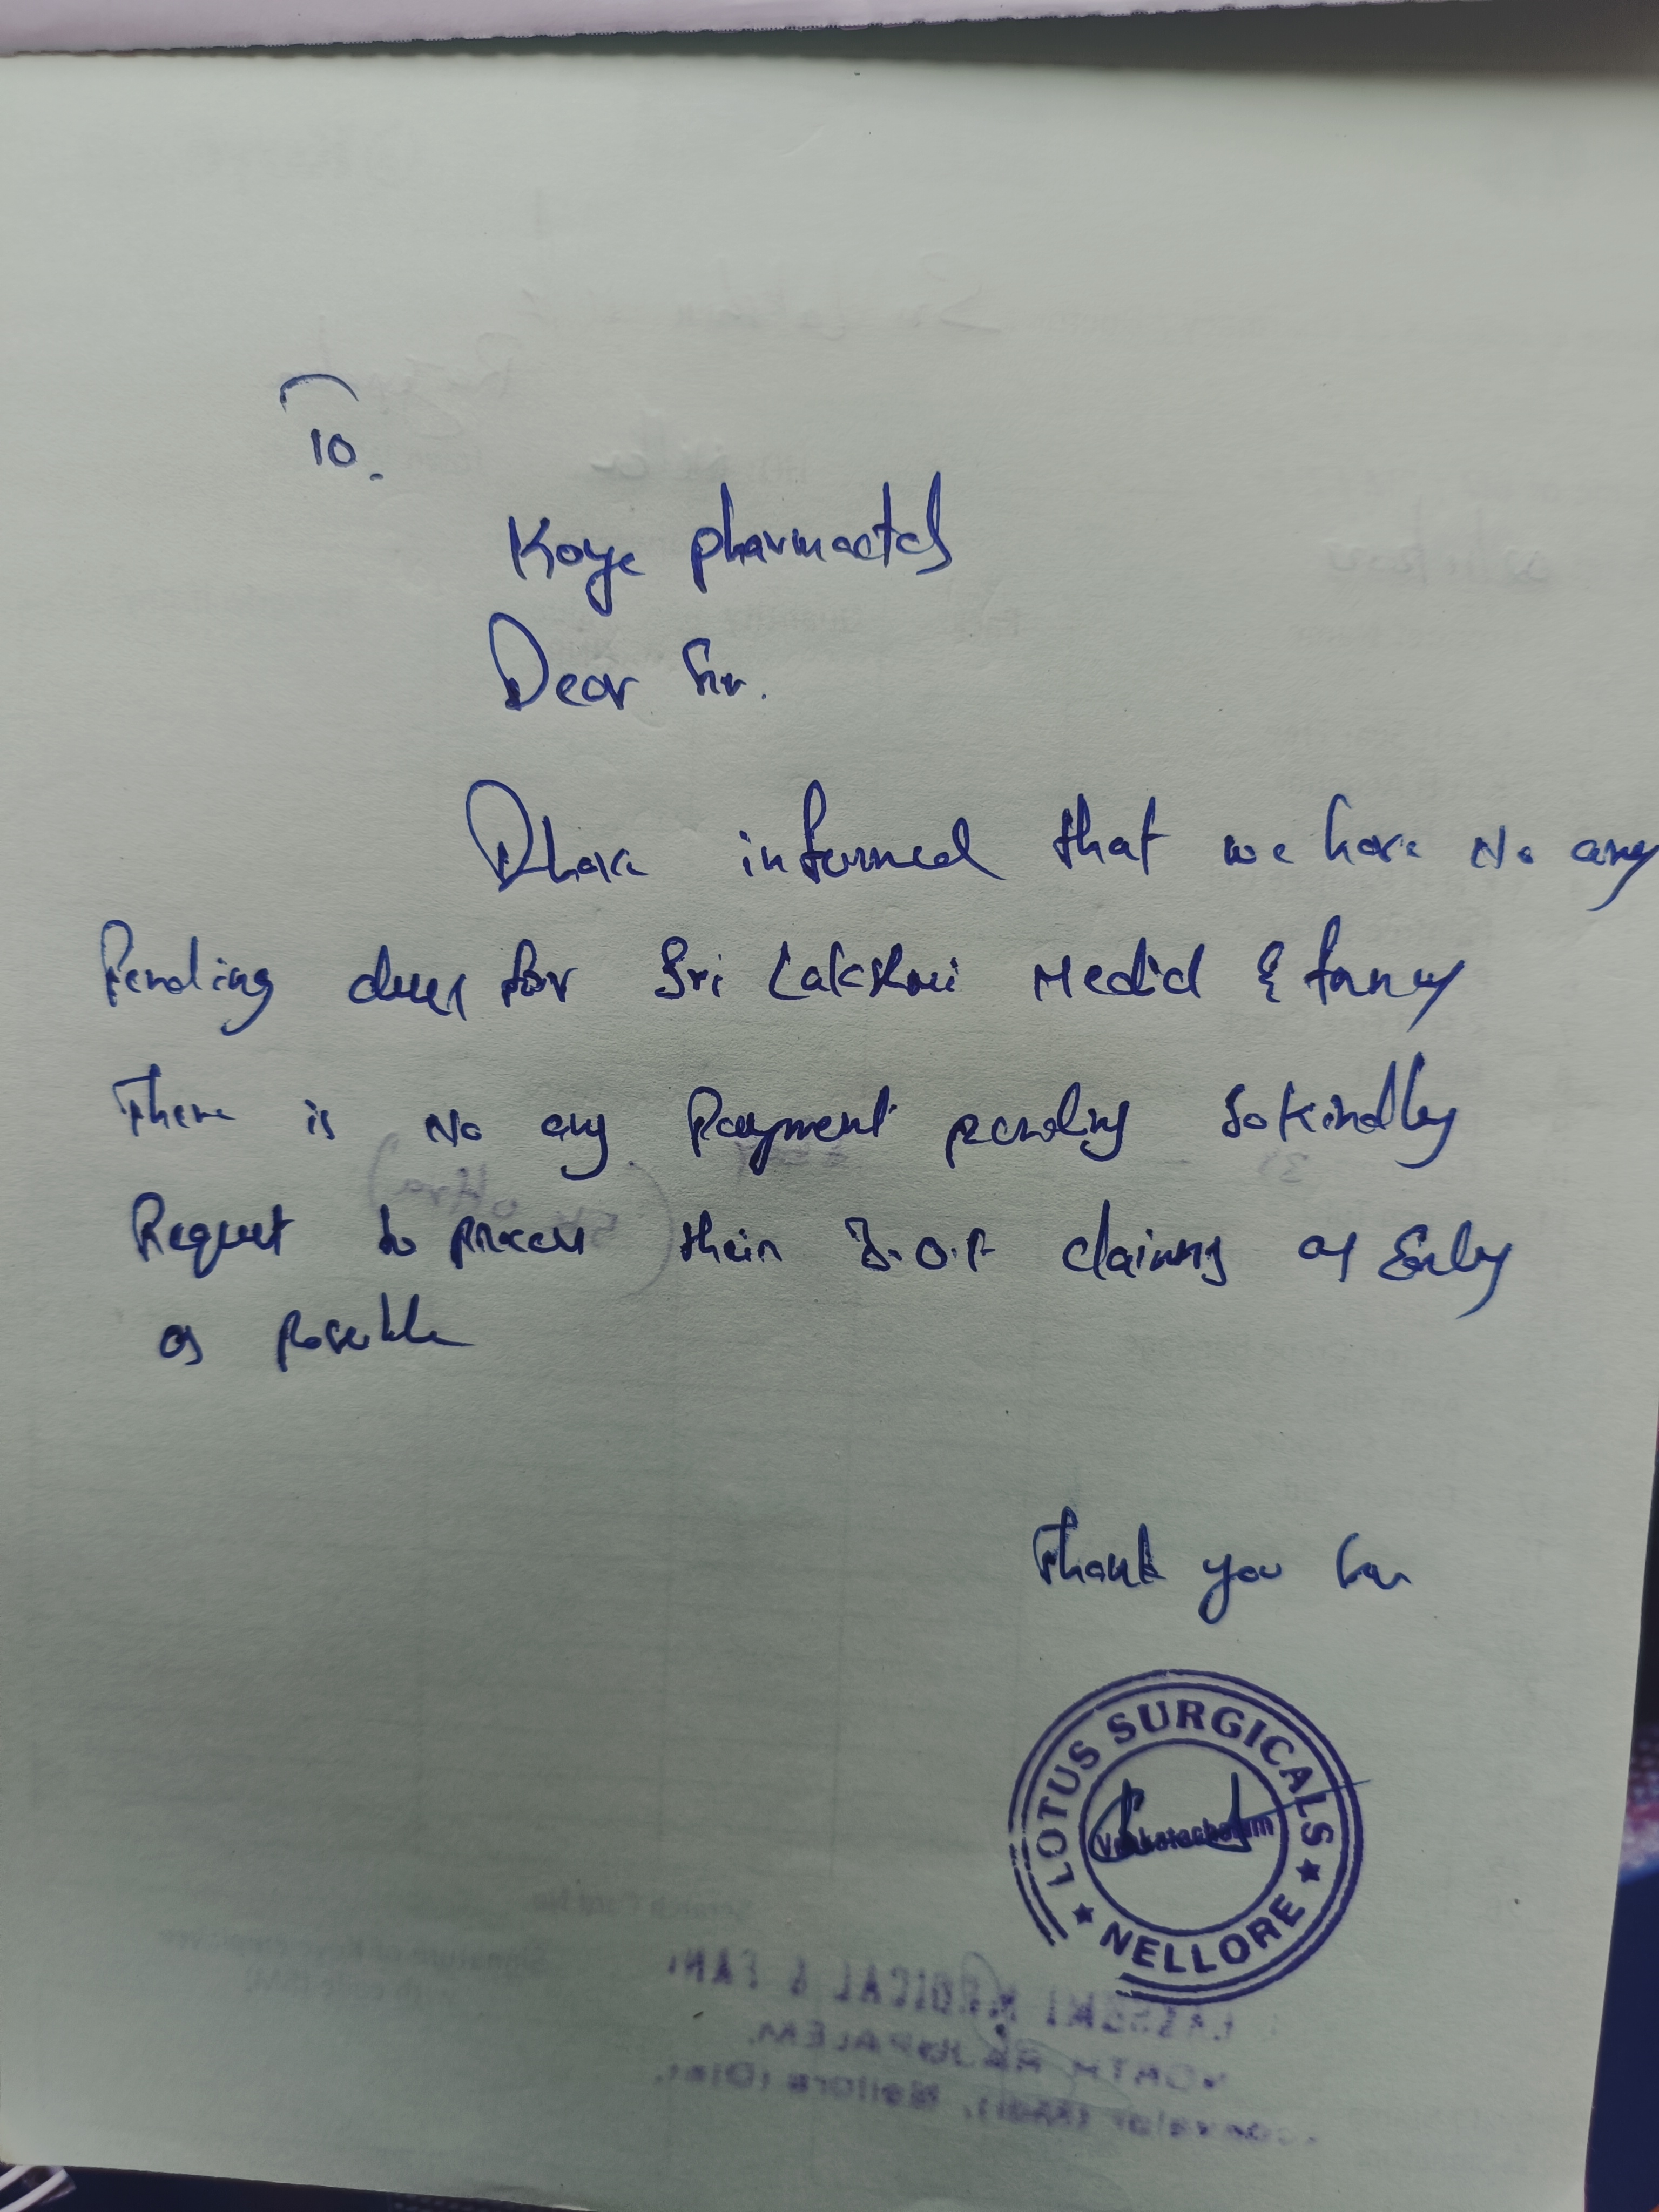 To.
Koye pharmactcls
Dear Sir.
I have informed that we have No any
Pending dues for Sri Lakshmi Medicl & fancy
There is No any Payment pending So kindly
Request to process their claiming as Early
as possible
Thank you Sir
LOTUS SURGICALS
Venkatachalam
★ NELLORE ★